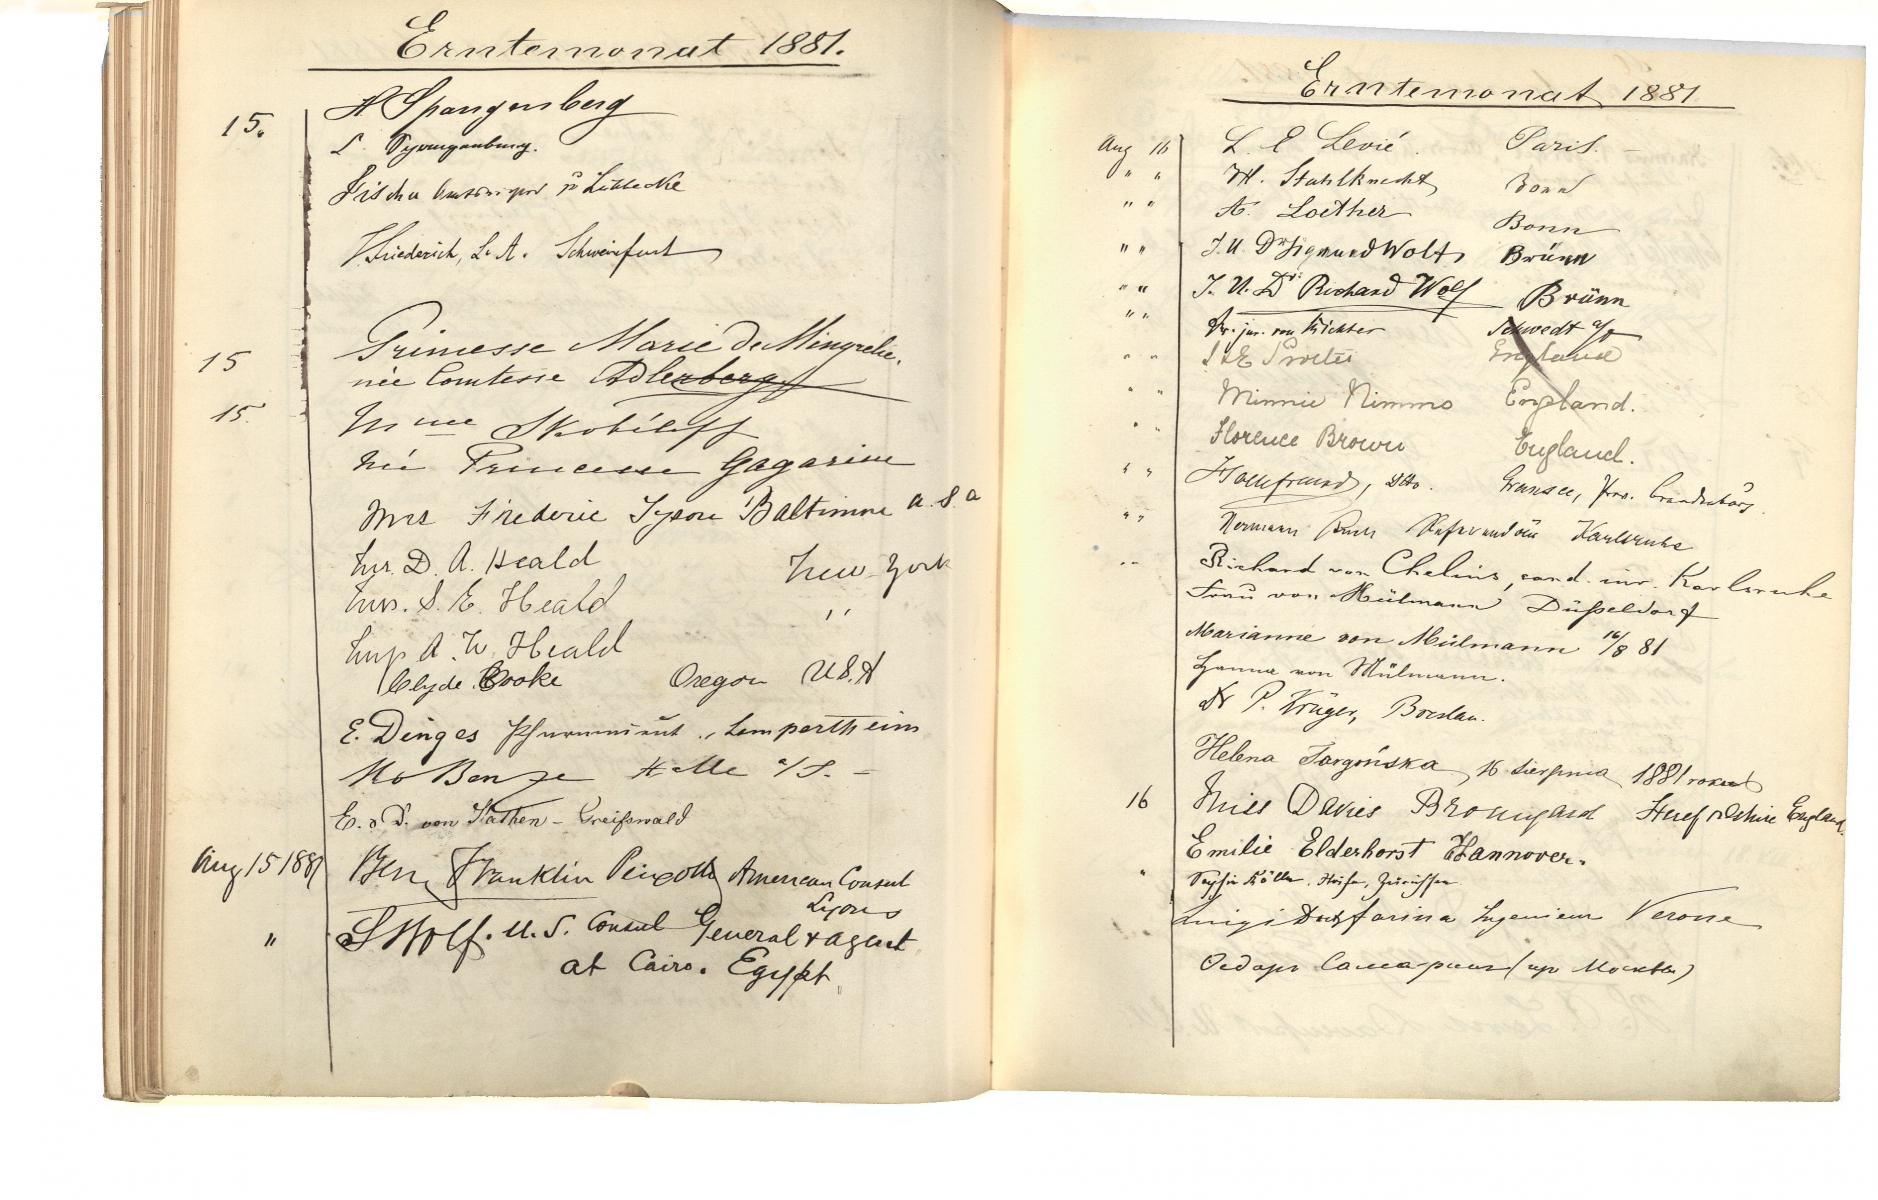 Erntemonat 1881.
15. H Spangenberg
L. Spangenberg.
Fischer
Friederich, L. A. Schweinfurt
15 Princesse Marie de Mingrelie.
née Comtesse Adlerberg
15. Mme Skobeleff
née Princesse Gagarine
Mrs Frederic Tyson Baltimore U.S.A
Mr. D. A. Heald New-York
Mrs. S. E. Heald "
Miss A. W. Heald
Clyde Cooke Oregon U.S.A
E. Dinges Lampertheim
Halle a/S. –
E. & D. von Kathen – Greifswald
Aug 15 1881 Benj Franklin Peixotto American Consul
Lyons
" S Wolf. U. S. Consul General & agent
at Cairo. Egypt
Erntemonat 1881
Aug 16 L. E Levié. Paris. –
" " H. Stahlknecht Bonn
" " A. Loether Bonn
" " J. U. Dr Sigmund Wolf Brünn
" " J. U. Dr. Richard Wolf Brünn
" " Dr. jur. von Richter Schwedt a/O
" " England
" " Minnie Nimmo England.
" " Florence Brown England.
" " Hollefreund, Gransee, Prov. Brandenburg.
" " Hermann Referendär Karlsruhe
" " Richard von Chelius, cand. iur. Karlsruhe
Frau von Mülmann Düsseldorf
Marianne von Mülmann 16/8 81
Hanna von Mülmann.
Dr P. Krüger, Breslau.
Helena Targońska, 16 sierpnia 1881 roku
16 Miss Davies Bromyard Herefordshire England.
Emilie Elderhorst Hannover.
"
Luigi farina Ingenieur Verone
Ѳедоръ Самаринъ (изъ Москвы)